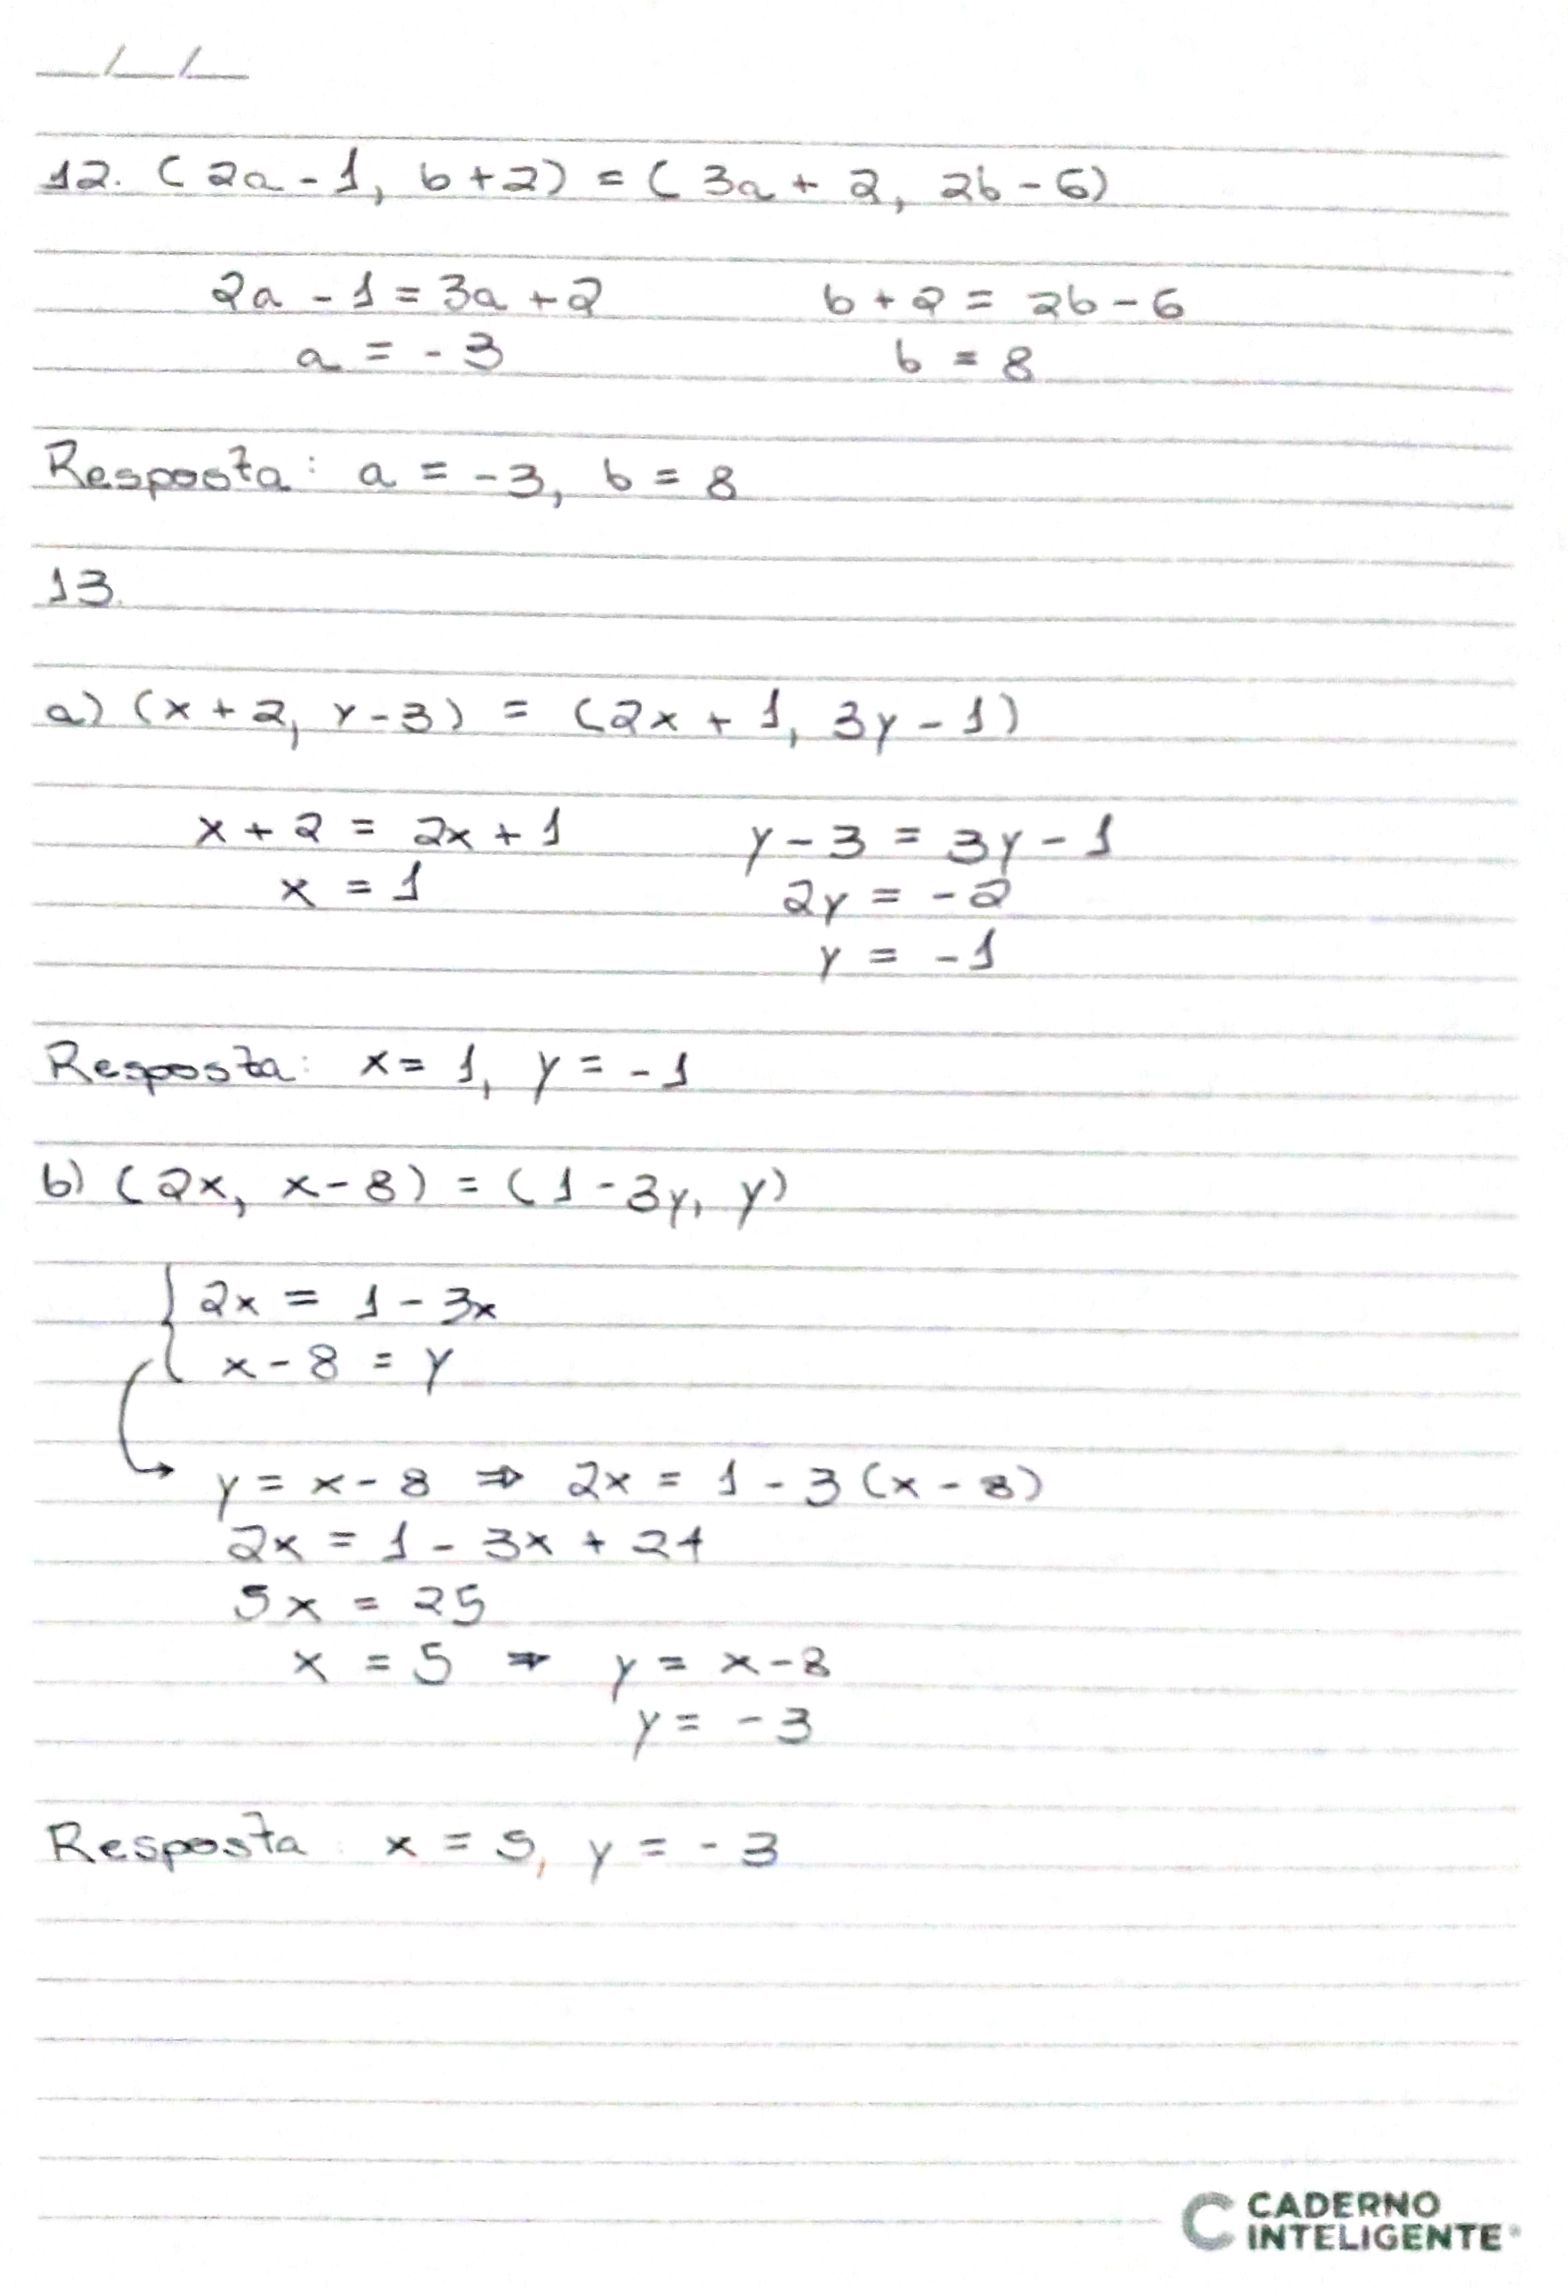 __/__/__
12. (2a - 1, b + 2) = (3a + 2, 2b - 6)
2a - 1 = 3a + 2 b + 2 = 2b - 6
a = - 3 b = 8
Resposta: a = -3, b = 8
13.
a) (x + 2, y - 3) = (2x + 1, 3y - 1)
x + 2 = 2x + 1 y - 3 = 3y - 1
x = 1 2y = -2
y = -1
Resposta: x = 1, y = -1
b) (2x, x - 8) = (1 - 3y, y)
2x = 1 - 3x
x - 8 = y
y = x - 8 ⇒ 2x = 1 - 3 (x - 8)
2x = 1 - 3x + 24
5x = 25
x = 5 ⇒ y = x - 8
y = - 3
Resposta: x = 5, y = - 3
CADERNO
INTELIGENTE®